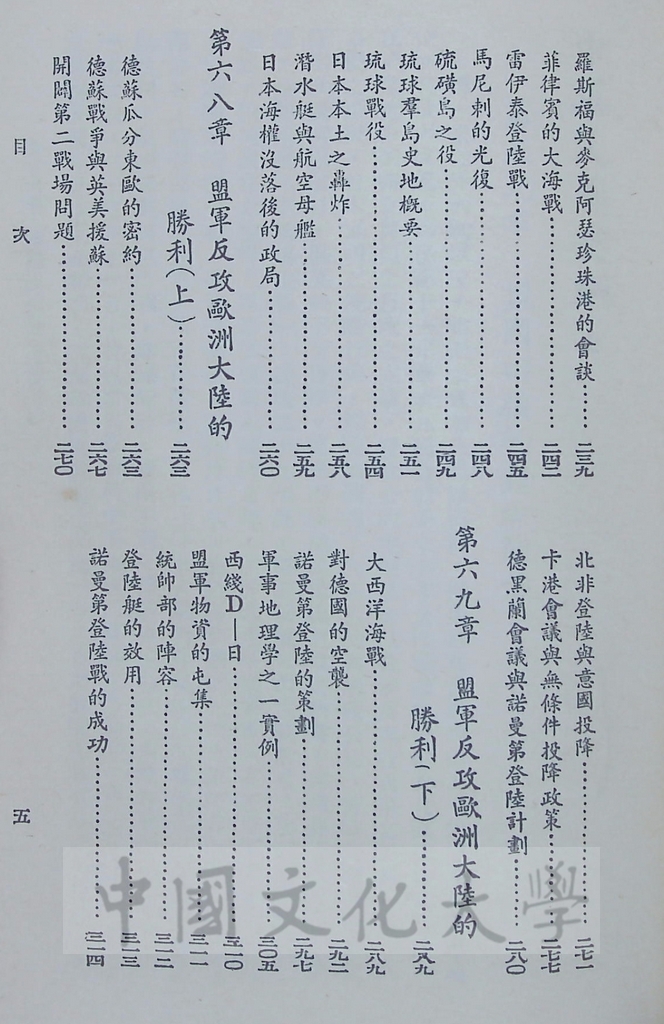 羅斯福與麥克阿瑟珍珠港的會談……二三九
菲律賓的大海戰……二四二
雷伊泰登陸戰……二四五
馬尼刺的光復……二四八
硫磺島之役……二四九
琉球羣島史地概要……二五一
琉球戰役……二五四
日本本土之轟炸……二五八
潛水艇與航空母艦……二五九
日本海權沒落後的政局……二六〇
第六八章 盟軍反攻歐洲大陸的
勝利(上)……二六三
德蘇瓜分東歐的密約……二六三
德蘇戰爭與英美援蘇……二六七
開闢第二戰場問題……二七〇
北非登陸與意國投降……二七一
卡港會議與無條件投降政策……二七七
德黑蘭會議與諾曼第登陸計劃……二八〇
第六九章 盟軍反攻歐洲大陸的
勝利(下)……二八九
大西洋海戰……二八九
對德國的空襲……二九二
諾曼第登陸的策劃……二九七
軍事地理學之一實例……三〇五
西綫D—日……三一〇
盟軍物資的屯集……三一一
統帥部的陣容……三一二
登陸艇的效用……三一三
諾曼第登陸戰的成功……三一四
目次
五
中國文化大學